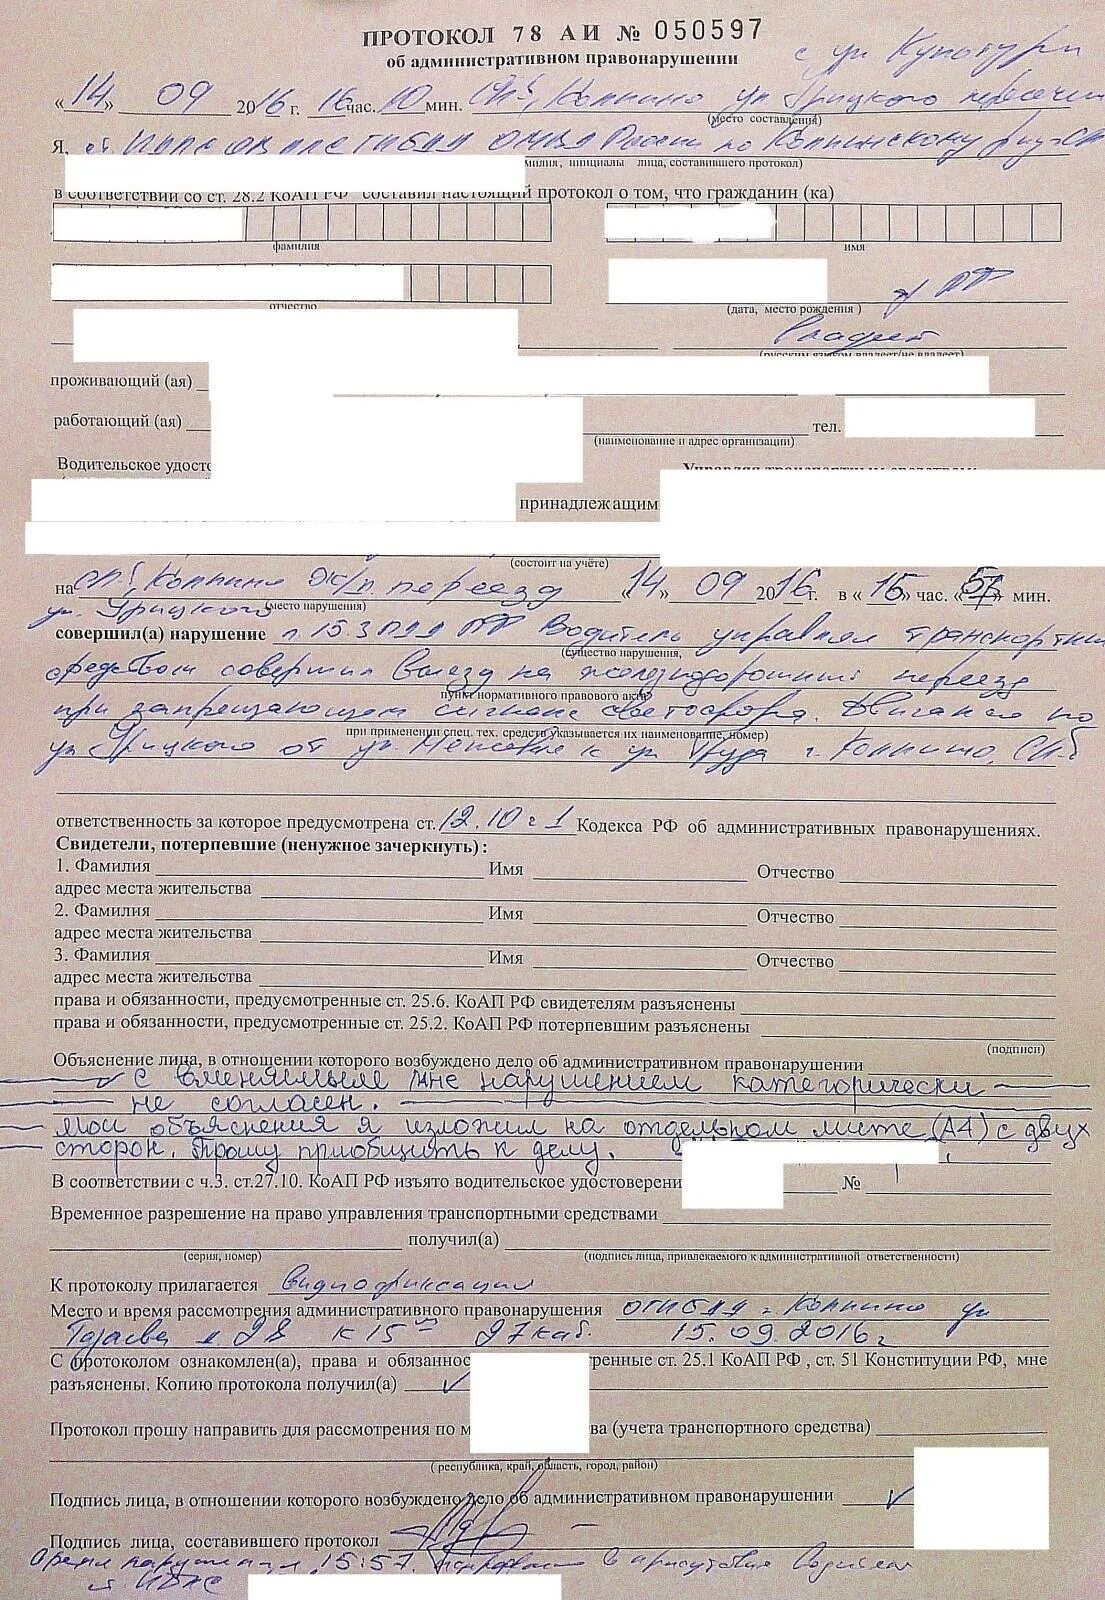 ПРОТОКОЛ 78 АИ № 050597
об административном правонарушении
с ул Культуры
«14» 09 2016 г. 16 час. 10 мин. СПб, Колпино ул Урицкого пересечение
(место составления)
Я, ст. ИДПС ОВ ДПС ГИБДД ОМВД России по Колпинскому р-ну СПб
милия, инициалы лица, составившего протокол)
в соответствии со ст. 28.2 КоАП РФ составил настоящий протокол о том, что гражданин (ка)
фамилия имя
РФ
отчество (дата, место рождения )
владеет
(русским языком владеет/не владеет)
проживающий (ая)
работающий (ая) тел.
(наименование и адрес организации)
Водительское удосто Управляя транспортным средством:
принадлежащим
(состоит на учёте)
на СПб Колпино ж/д переезд «14» 09 2016 г. в «15» час. «57» мин.
ул. Урицкого (место нарушения)
совершил(а) нарушение п. 15.3 ПДД РФ Водитель управляя транспортным
(существо нарушения,
средством совершил выезд на железнодорожный переезд
пункт нормативного правового акта
при запрещающем сигнале светофора. Двигался по
при применении спец. тех. средств указывается их наименование, номер)
ул Урицкого от ул. к ул Труда г. Колпино, СПб
ответственность за которое предусмотрена ст. 12.10 ч 1 Кодекса РФ об административных правонарушениях.
Свидетели, потерпевшие (ненужное зачеркнуть):
1. Фамилия Имя Отчество
адрес места жительства
2. Фамилия Имя Отчество
адрес места жительства
3. Фамилия Имя Отчество
адрес места жительства
права и обязанности, предусмотренные ст. 25.6. КоАП РФ свидетелям разъяснены
права и обязанности, предусмотренные ст. 25.2. КоАП РФ потерпевшим разъяснены
(подписи)
Объяснение лица, в отношении которого возбуждено дело об административном правонарушении
с вменяемым мне нарушением категорически
не согласен.
Мои объяснения я изложил на отдельном листе (А4) с двух
сторон. Прошу приобщить к делу.
В соответствии с ч.3. ст.27.10. КоАП РФ изъято водительское удостоверени №
Временное разрешение на право управления транспортными средствами
получил(а)
(серия, номер) (подпись лица, привлекаемого к административной ответственности)
К протоколу прилагается видиофиксация
Место и время рассмотрения административного правонарушения ОГИБДД г. Колпино ул
д. 28 к 15 27 каб. 15.09.2016 г
С протоколом ознакомлен(а), права и обязаннос тренные ст. 25.1 КоАП РФ , ст. 51 Конституции РФ, мне
разъяснены. Копию протокола получил(а)
Протокол прошу направить для рассмотрения по м ва (учета транспортного средства)
( республика, край, область, город, район)
Подпись лица, в отношении которого возбуждено дело об административном правонарушении
Подпись лица, составившего протокол
Время 15:57. в присутствии водителя
ст. ИДПС